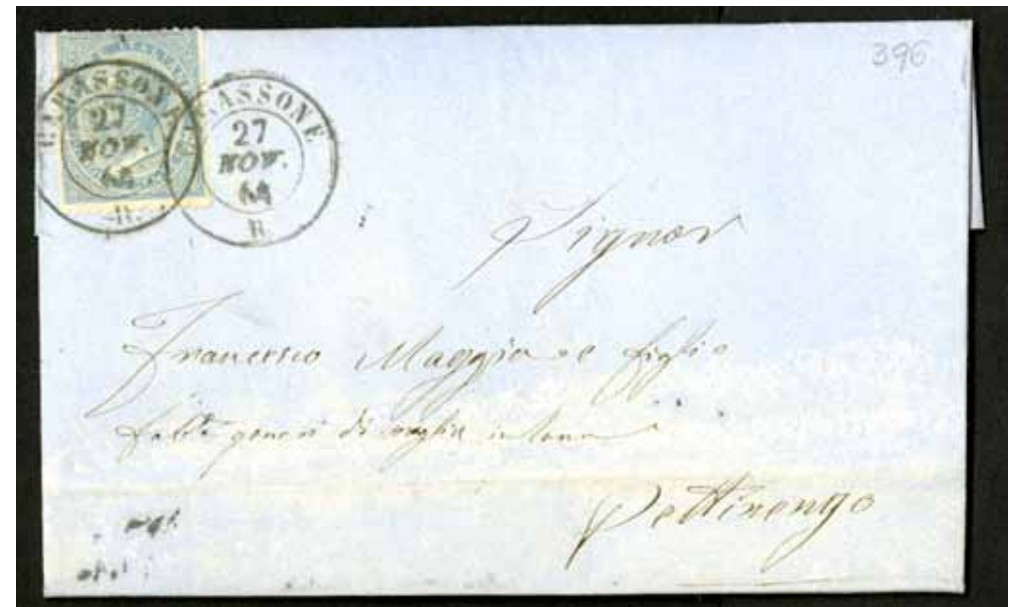 396
CARASSONE
27
NOV.
64
CARASSONE
27
NOV.
64
Signor
Francesco Maggia e figlio
generi di maglie in lana
Pettinengo